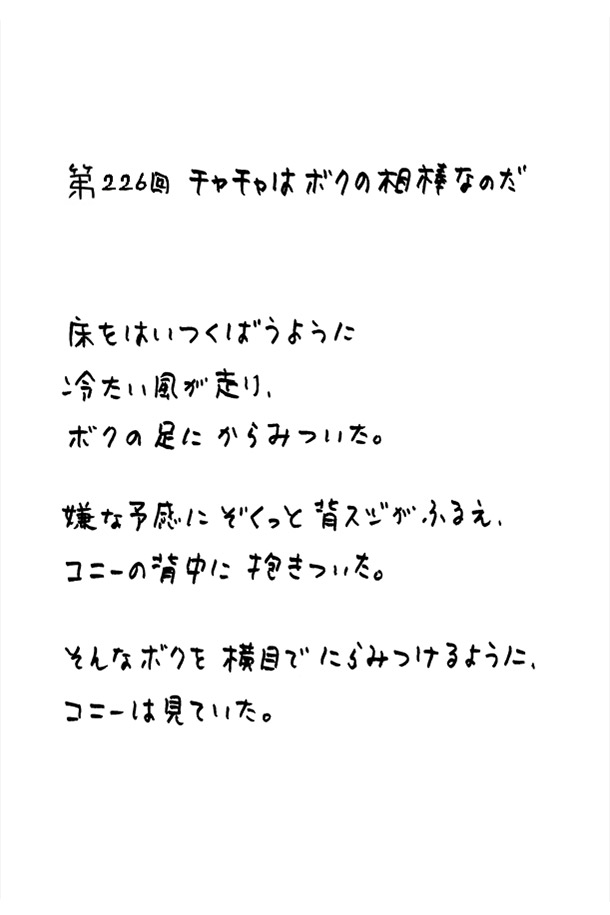 第226回 チャチャはボクの相棒なのだ
床をはいつくばうように
冷たい風が走り、
ボクの足にからみついた。
嫌な予感にぞくっと背スジがふるえ、
コニーの背中に抱きついた。
そんなボクを横目でにらみつけるように、
コニーは見ていた。